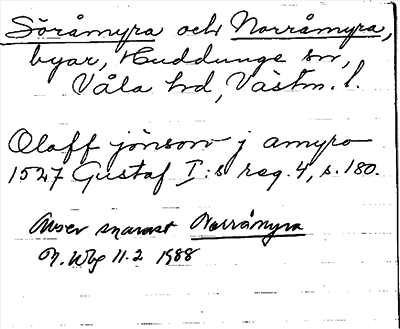 Söråmyra och Norråmyra,
byar, Huddunge sn,
Våla hd, Västm. l.
Olaff jönson j amyro
1527 Gustaf I:s reg. 4, s. 180.
Avser snarast Norråmyra
N. Wbg 11.2 1988